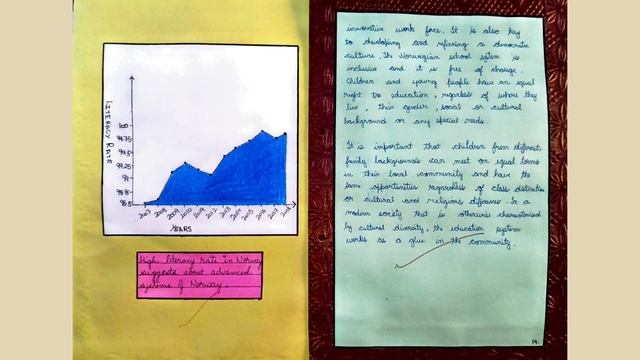 LITERACY RATE
100
99.75
99.5
99.25
99
98.5
2007 2008 2009 2010 2012 2013 2014 2015 2016 2017 2018
YEARS
High literacy rate in Norway
suggests about advanced
systems of Norway.
innovative work force. It is also key
to developing and refining a democratic
culture. The Norwegian school system is
inclusive and it is free of charge.
Children and young people have an equal
right to education, regardless of where they
live, their gender, social or cultural
background or any special needs.
It is important that children from different
family backgrounds can meet on equal terms
in their local community and have the
same opportunities regardless of class distinction
or cultural and religious difference. In a
modern society that is otherwise characterised
by cultural diversity, the education system
works as a glue in the community.
14.